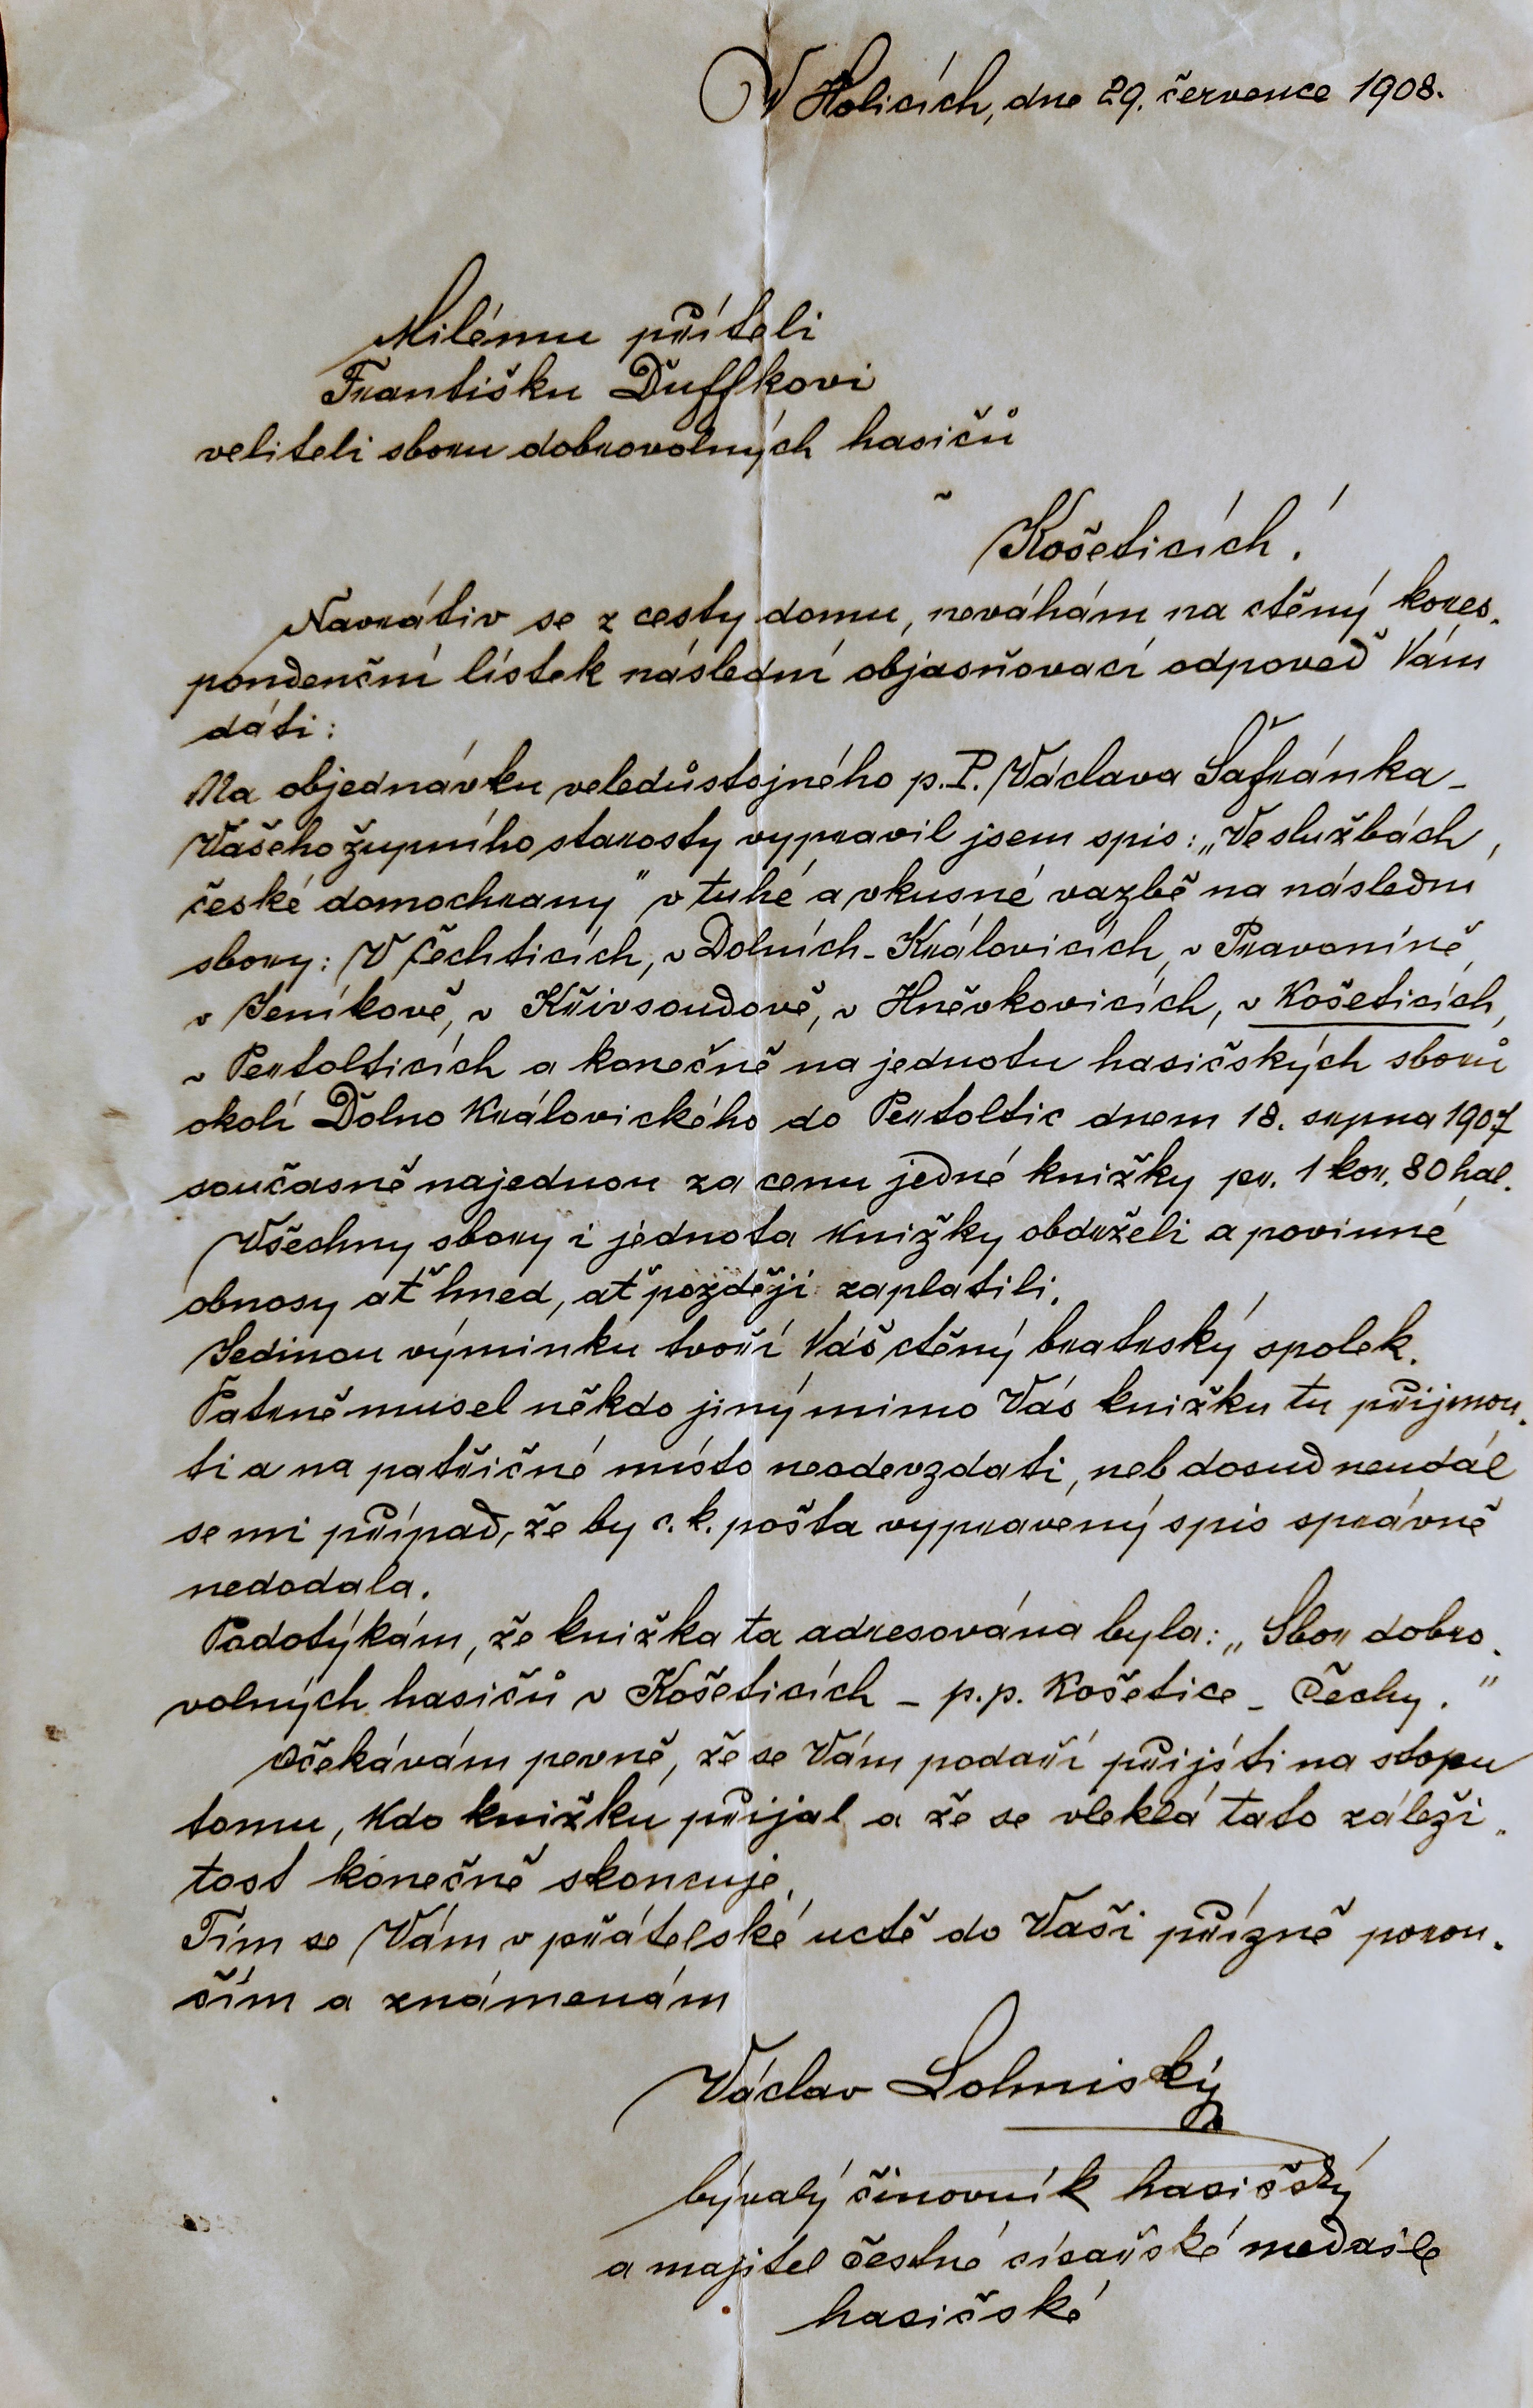 V Holicích, dne 29. července 1908.
Milému příteli
Františku Duffkovi
veliteli sboru dobrovolných hasičů
v
Košeticích!
Navrátiv se z cesty domu, neváhám na ctěný kores-
pondenční lístek následní objasňovací odpověď Vám
dáti:
Na objednávku veledůstojného p. P. Václava Šafránka -
Vašeho župního starosty vypravil jsem spis: „Ve službách
české domochrany" v tuhé a vkusné vazbě na následní
sbory: V Čechticích, v Dolních-Královicích, v Pravoníně,
v Jeníkově, v Křivsoudově, v Hněvkovicích, v Košeticích,
v Pertolticích a konečně na jednotu hasičských sborů
okolí Dolno Královického do Pertoltic dnem 18. srpna 1907
současně najednou za cenu jedné knížky pr. 1 kor. 80 hal.
Všechny sbory i jednota knížky obdrželi a povinné
obnosy ať hned, ať později zaplatili.
Jedinou výminku tvoří Váš ctěný bratrský spolek.
Patrně musel někdo jiný mimo Vás knížku tu přijmou-
ti a na patřičné místo neodevzdati, neb dosud neudál
se mi případ, že by c. k. pošta vypravený spis správně
nedodala.
Podotýkám, že knížka ta adresována byla: „Sbor dobro-
volných hasičů v Košeticích - p. p. Košetice - Čechy."
Očekávám pevně, že se Vám podaří přijíti na stopu
tomu, kdo knížku přijal a že se vleklá tato záleži-
tost konečně skoncuje.
Tím se Vám v přátelské uctě do Vaši přízně porou-
čím a známenám
Václav Lomniský
bývalý činovník hasičský
a majitel čestné císařské medaile
hasičské